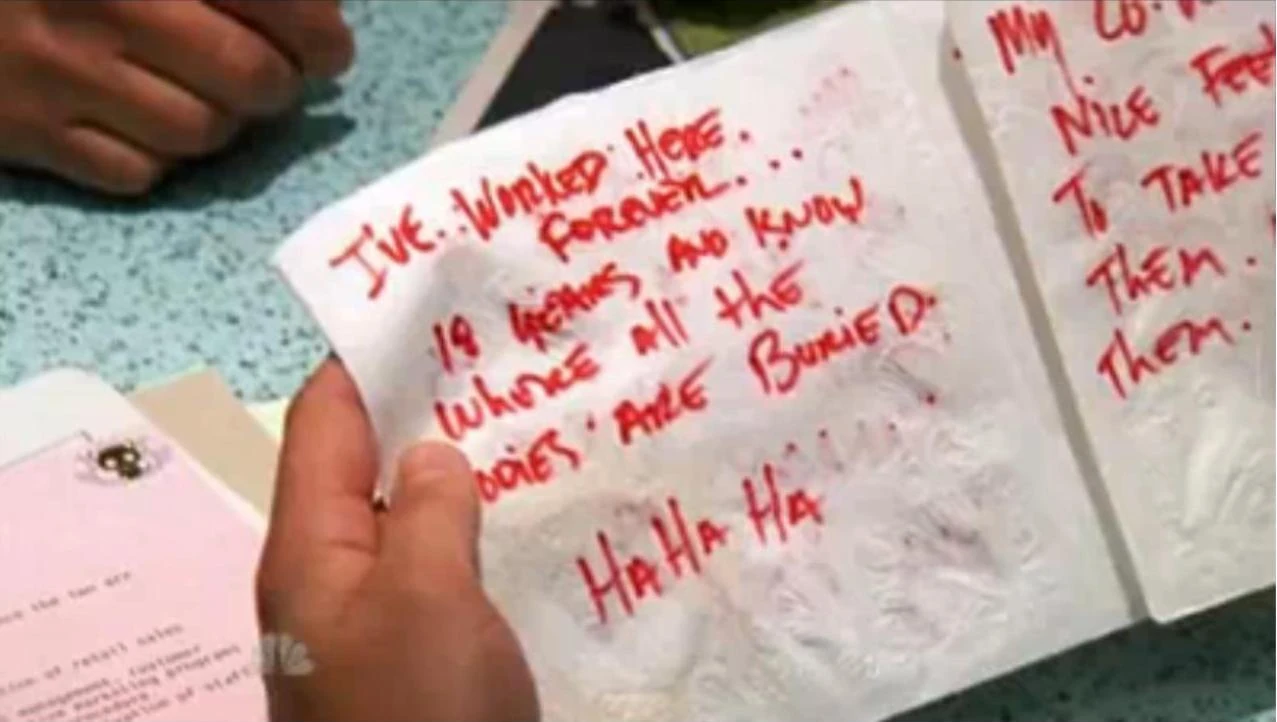 I'VE..WORKED HERE.
FOREVER...
19 YEARS AND KNOW
WHERE All the
ODIES ARE BURIED.
HAHA HA
My CO-
NICE FEE
To TAKE
THEM.
THEM.
the tan are
of retail sales
management, customer
marketing programs
of staff